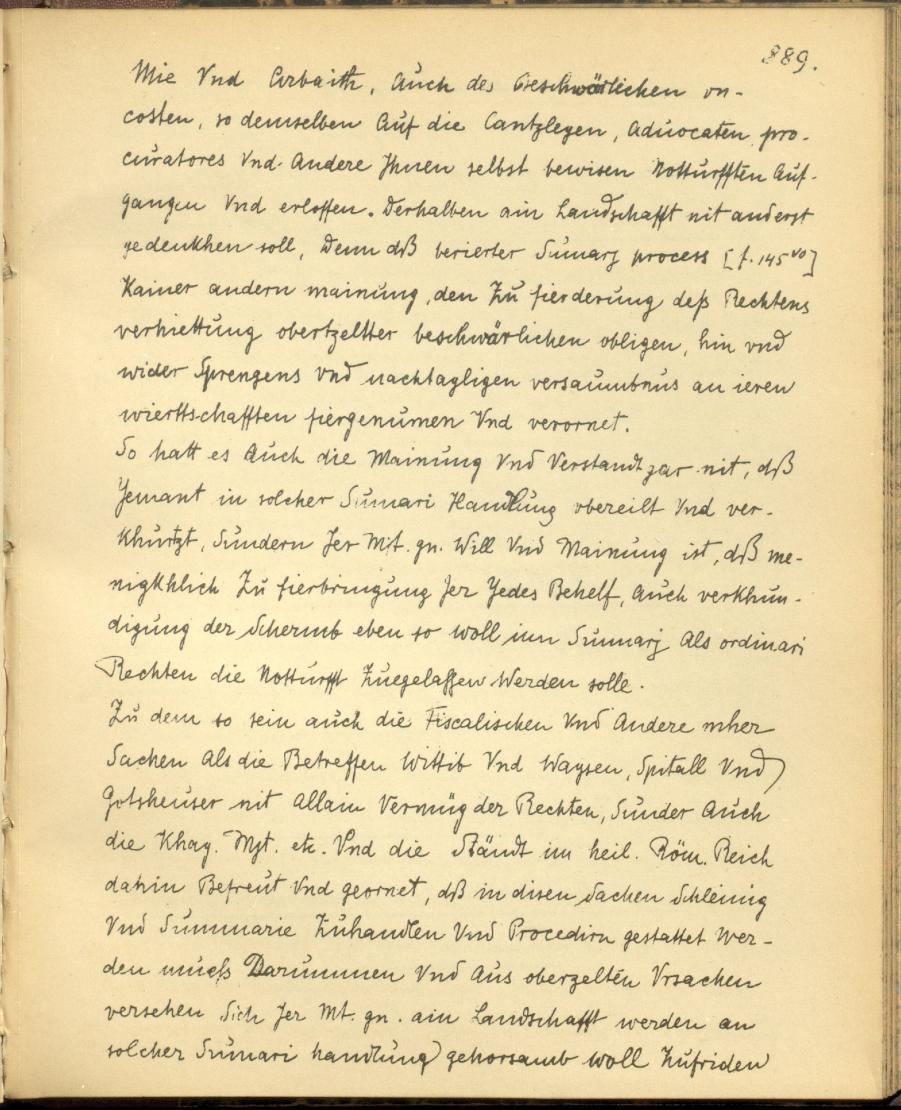 889.
Mie Vnd Arbaith, Auch des Geschwärlichen vn-
costen, so demselben Auf die Cantzleyen, Aduocaten pro-
curatores Vnd Andere Jhnen selbst bewisen Notturfften Auf-
gangen Vnd erloffen. Derhalben ain Landschafft nit anderst
gedenkhen soll, Denn dß berierter Sumarj process [f. 145 vo]
Kainer andern mainung, den Zu fierderung deß Rechtens
verhiettung obertzeltter beschwärlichen obligen, hin vnd
wider Sprengens vnd nachtagligen versaumbnus an ieren
wierttschafften fiergenumen Vnd verornet.
So hatt es Auch die Mainung Vnd Verstandt gar nit, dß
Yemant in solcher Sumari Handlung vbereilt Vnd ver-
khurtzt, Sundern Jer Mt. gn. Will Vnd Mainung ist, dß me-
nigkhlich Zu fierbringung Jer Yedes Behelf, Auch verkhun-
digung der Schermb eben so woll inn Sumarj Als ordinari
Rechten die Notturfft Zuegelassen Werden solle.
Zu dem so sein auch die Fiscalischen Vnd Andere mher
Sachen Als die Betreffen Wittib Vnd Waysen, Spitall Vnd
Gotsheuser nit Allain Vermüg der Rechten, Sunder Auch
die Khay. Mjt. etc. Vnd die Ständt im heil. Röm. Reich
dahin Befreut Vnd geornet, dß in disen Sachen Schleinig
Vnd Summarie Zuhandlen Vnd Procedirn gestattet Wer-
den muess Darummen Vnd Aus oberzelten Vrsachen
versehen Sich Jer Mt. gn. ain Landschafft werden an
solcher Sumari handlung gehorsamb woll Zufriden